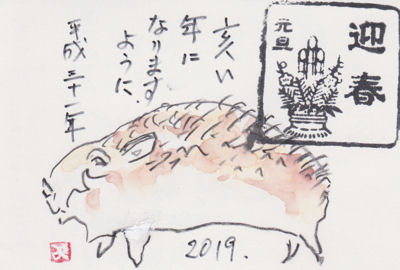 迎春
元旦
亥い
年に
なります
ように
平成三十一年
2019.